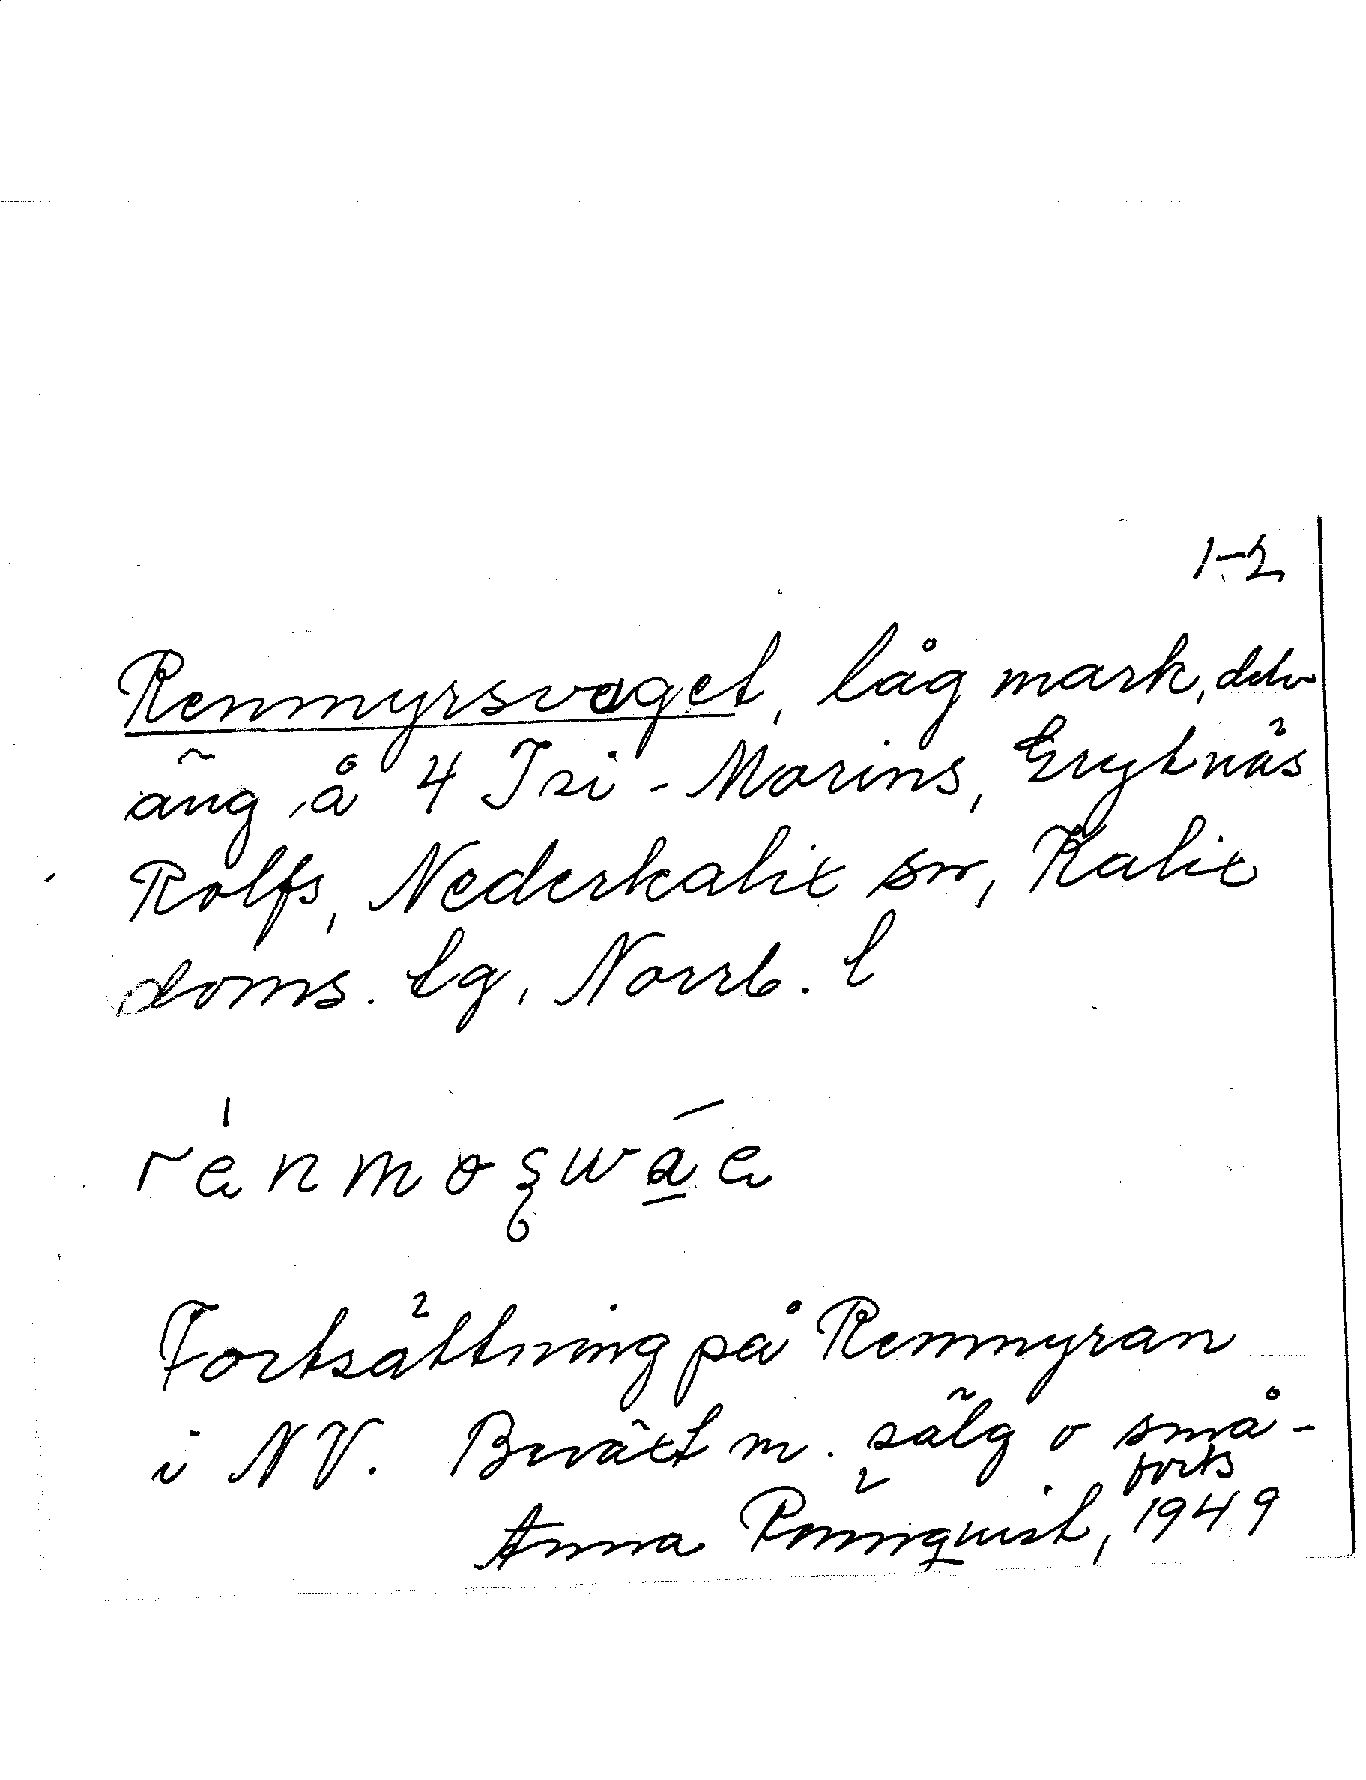 1-2
Renmyrsvaget, låg mark, delv
äng å 4 Isi-Morins, Grytnäs
Rolfs, Nederkalix sn, Kalix
doms. tg, Norrb. l
rénmoʂwáe
Fortsättning på Renmyran
i NV. Beväxt m. sälg o små-
forts
Anna Rönnquist, 1949